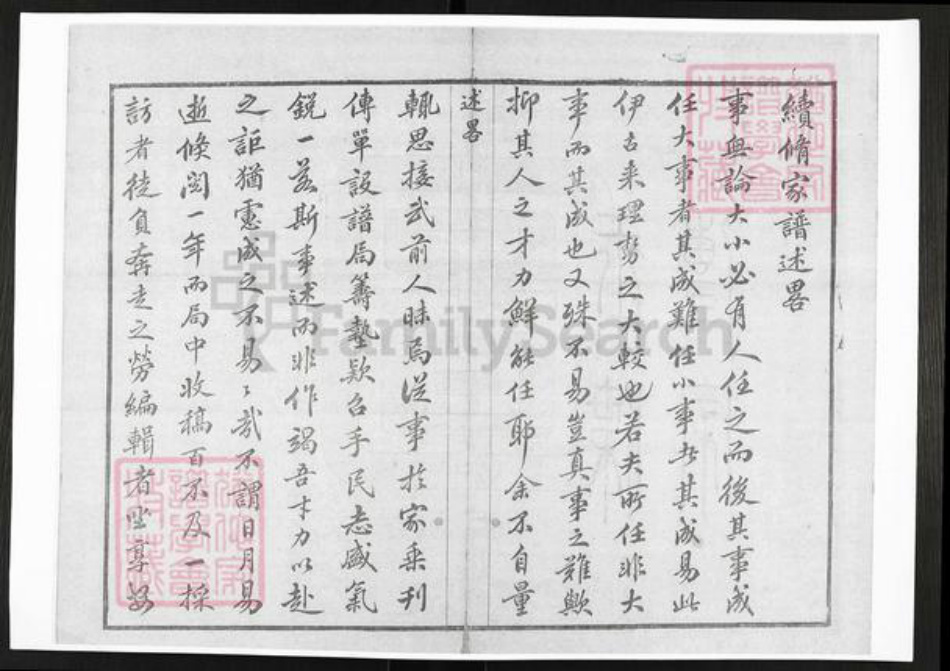 續脩家譜述畧
事無論大小必有人任之而後其事成
任大事者其成難任小事者其成易此
伊古来理势之大較也若夫所任非大
事而其成也又殊不易豈真事之難歟
抑其人之才力鮮能任耶余不自量
述畧
輒思接武前人昧焉從事於家乗刊
傳單設譜局籌墊欵召手民志盛氣
銳一若斯事述而非作竭吾才力以赴
之詎猶慮成之不易易哉不謂日月易
逝倏閲一年而局中收稿百不及一採
訪者徒負奔走之勞編輯者坐享
FamilySearch